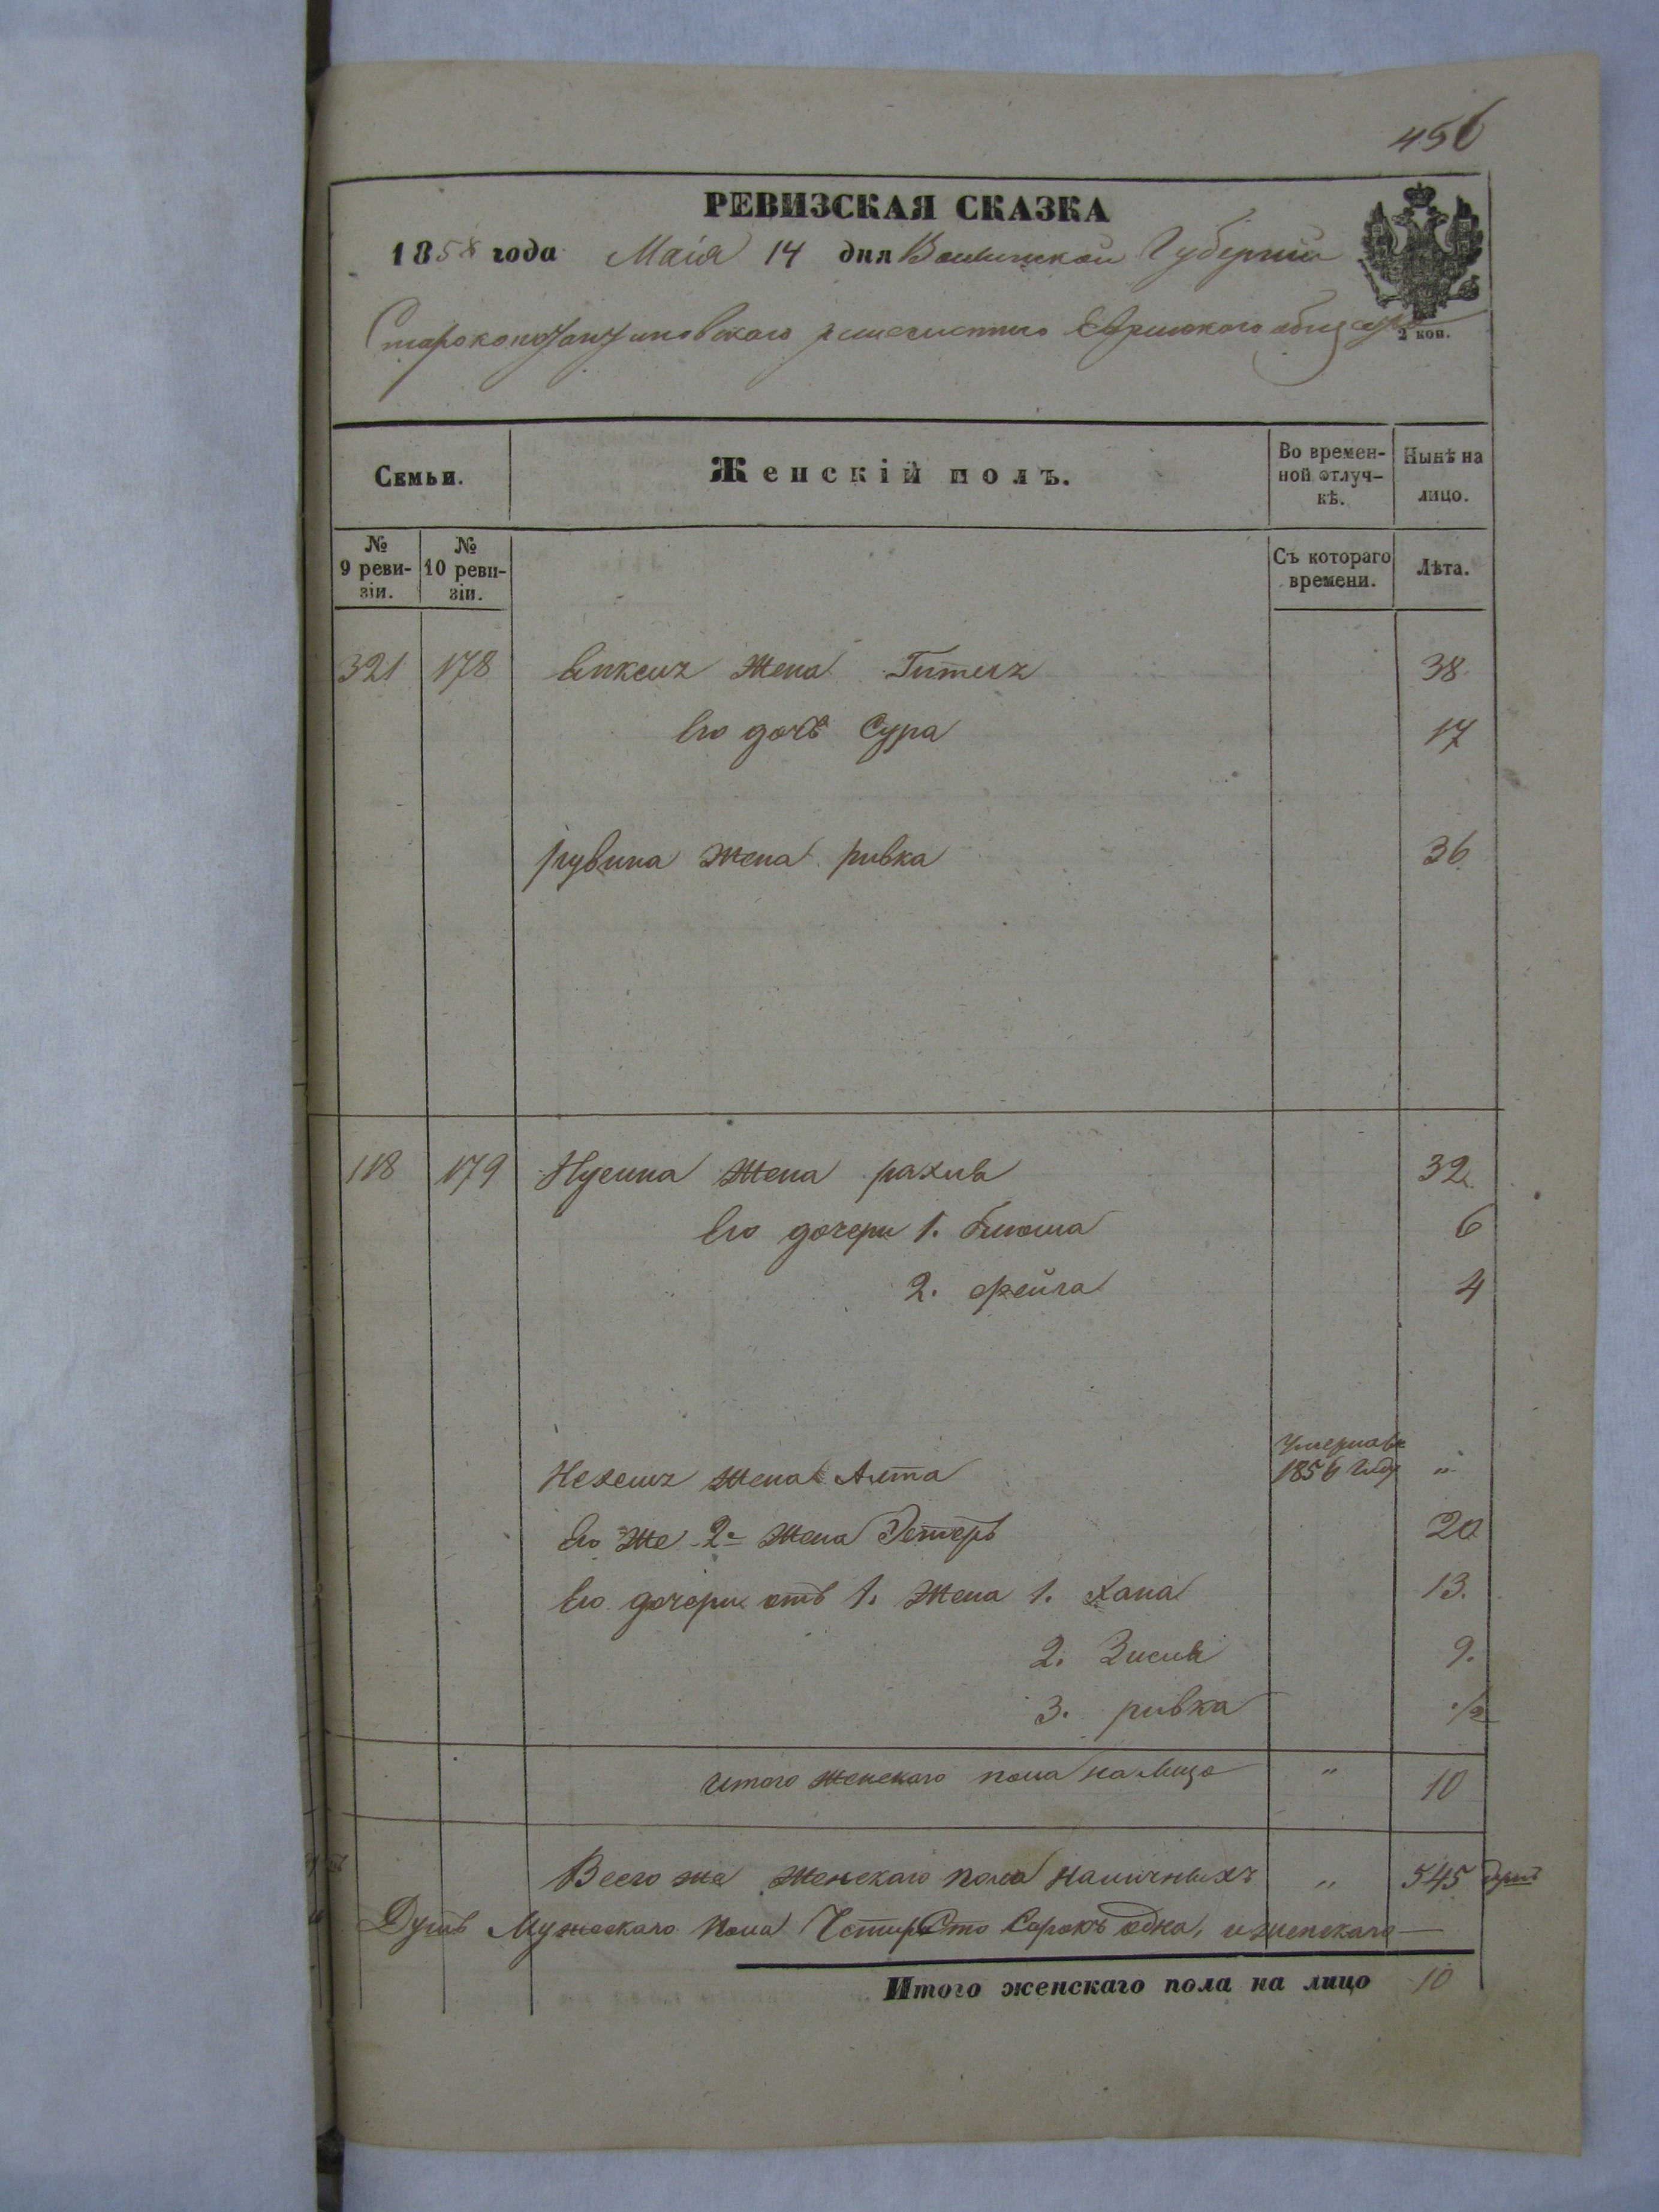 456
РЕВИЗСКАЯ СКАЗКА
1858 года Маія 14 дня Волынской Губерніи
Староконстантиновского Еврейского общества
2 коп.
Семьи. Женскій полъ. Во времен- Нынѣ на
ной отлуч- лицо.
кѣ.
№ № Съ котораго Лѣта.
9 реви- 10 реви- времени.
зіи. зіи.
321 178 жена 38.
Его дочь Сура 17
рувина жена ривка 36
118 179 Нусина жена рахиль 32.
Его дочери 1. 6
2. фейга 4
Умерла въ
жена Алта 1856 году "
Его же 2я жена Эстерь 20
Его дочери отъ 1. жена 1. Хана 13.
2. Зисля 9.
3. ривка 1/2
Итого женскаго пола на лицо " 10
Всего же женскаго пола наличныхъ " 545
Душъ Мужескаго пола Четыриста Сорокъ одна, и женскаго —
Итого женскаго пола на лицо 10